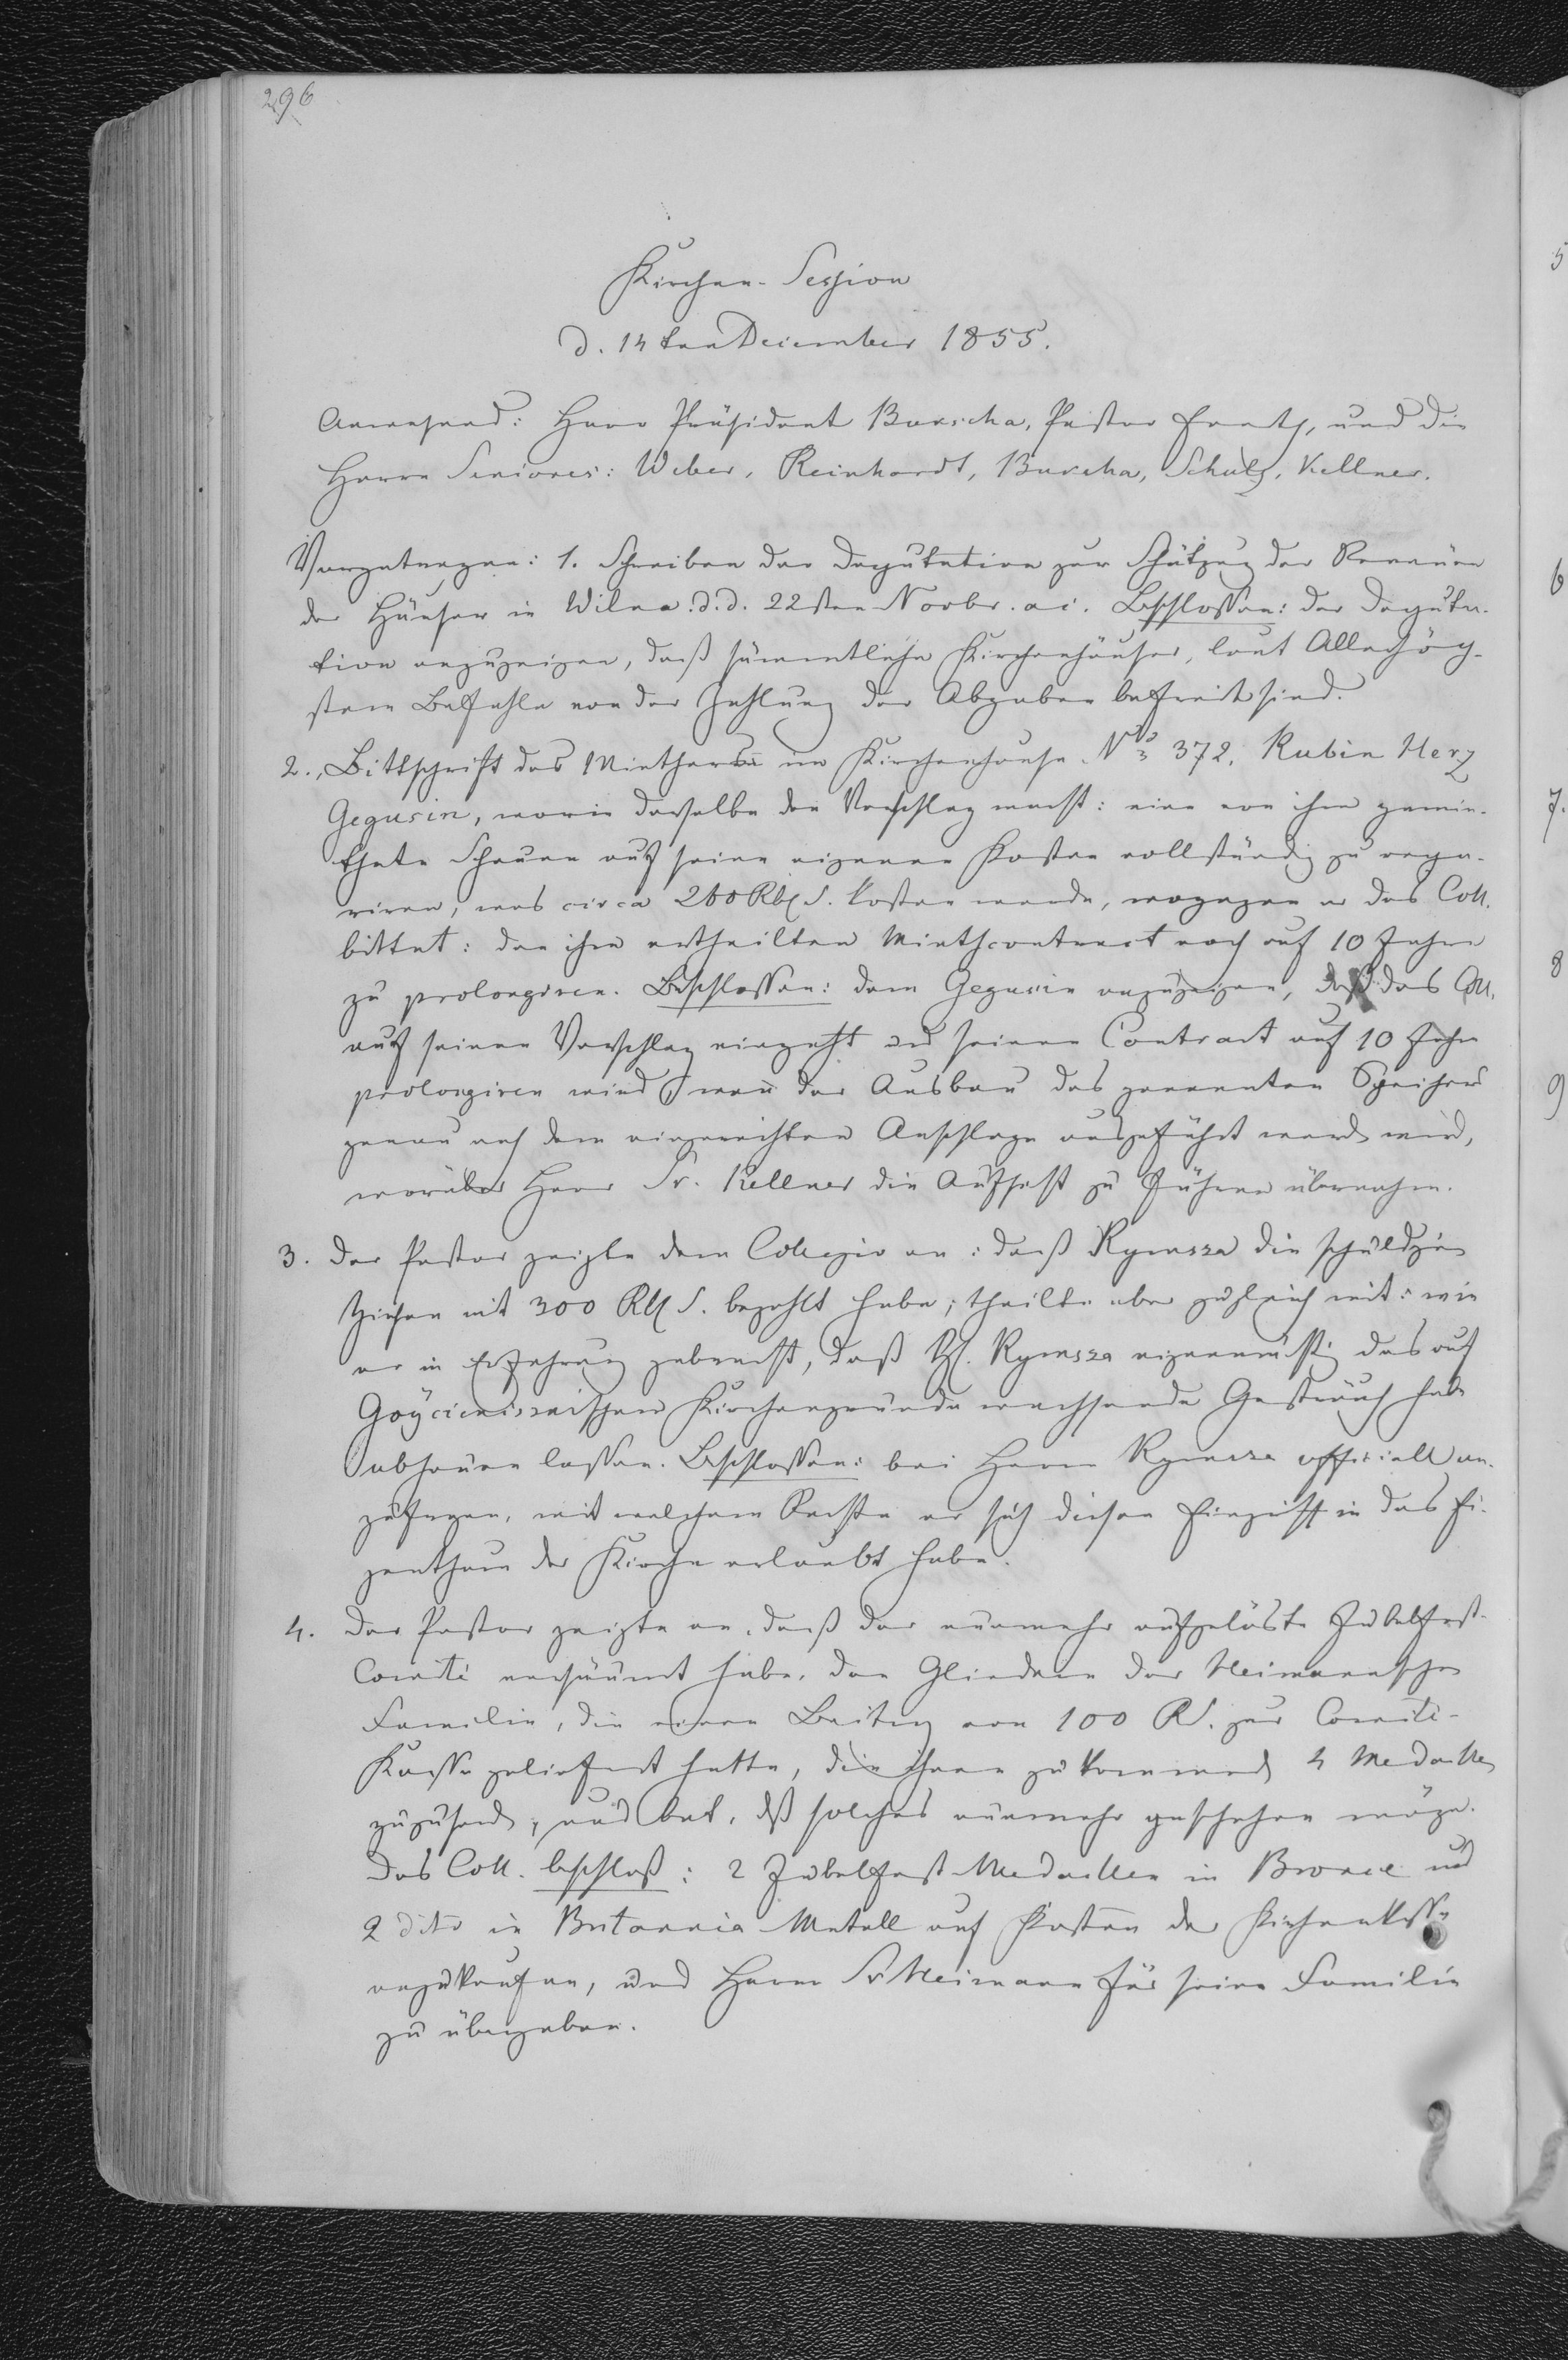 296
Kirchen-Session
d. 14ten December 1855.
Anwesend: Herr Präsident Barscha, Pastor Frantz, und die
Herrn Seniores: Weber, Reinhardt, Barcha, Schulz, Kellner.
Vorgetragen: 1. Schreiben der Deputation zur Schätzung der Revenüen
der Häuser in Wilna d.d. 22sten Novbr. a.c. Beschlossen: der Deputa-
tion anzuzeigen, daß sämmtliche Kirchenhäuser, laut Allerhöch-
stem Befehle von der Zahlung der Abgaben befreit sind.
2. Bittschrift des Miethers im Kirchenhause No 372, Rubin Herz
Gegusin, worin derselbe den Vorschlag macht: eine von ihm gemie-
thete Scheune auf seine eigenen Kosten vollständig zu repa-
riren, was circa 200 Rbl S. kosten werde, wogegen er das Coll.
bittet: den ihm ertheilten Miethcontract noch auf 10 Jahre
zu prolongiren. Beschlossen: dem Gegusin anzuzeigen, daß das Coll.
auf seinen Vorschlag eingeht und seinen Contract auf 10 Jahre
prolongiren wird, wenn der Ausbau des genannten Speichers
genau nach dem eingereichten Anschlage ausgeführt werden wird,
worüber Herr Sr. Kellner die Aufsicht zu führen übernahm.
3. Der Pastor zeigte dem Collegio an: daß Rymsza die schuldigen
Zinsen mit 300 Rbl S. bezahlt habe; theilte aber zugleich mit: wie
er in Erfahrung gebracht, daß H. Rymsza eigenmächtig das auf
Goycieniszkischem Kirchengrunde wachsende Gesträuch habe
abhauen lassen. Beschlossen: bei Herrn Rymsza officiell an-
zufragen, mit welchem Rechte er sich diesen Eingriff in das Ei-
genthum der Kirche erlaubt habe.
4. Der Pastor zeigte an, daß der nunmehr aufgelöste Jubelfest-
Comité versäumt habe, den Gliedern der Heimannschen
Familie, die einen Beitrag von 100 RS. zur Comité-
Kasse geliefert hatte, die ihnen zukommenden 4 Medaillen
zuzusenden, und bat, daß solches nunmehr geschehen möge.
Das Coll. beschloß: 2 Jubelfest-Medaillen in Bronce und
2 dito in Britannia Metall auf Kosten der Kirchenkasse
anzukaufen, und Herrn Sr Heimann für seine Familie
zu übergeben.
5
6
7.
8
9